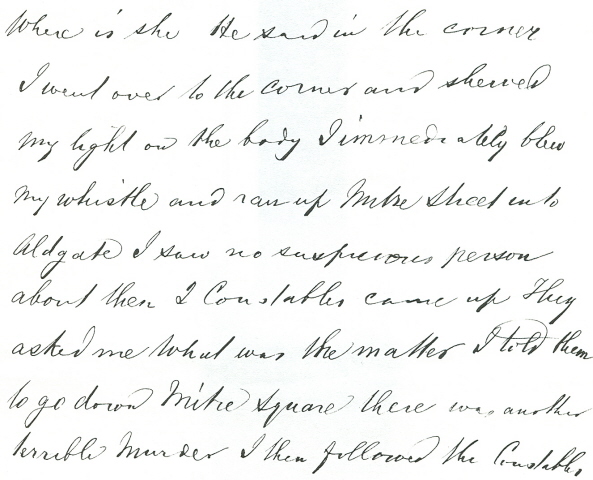 Where is she He said in the corner
I went over to the corner and shewed
my light on the body I immediately blew
my whistle and ran up Mitre Street into
Aldgate I saw no suspicious person
about then 2 Constables came up They
asked me what was the matter I told them
to go down Mitre Square there was another
terrible Murder I then followed the Constables